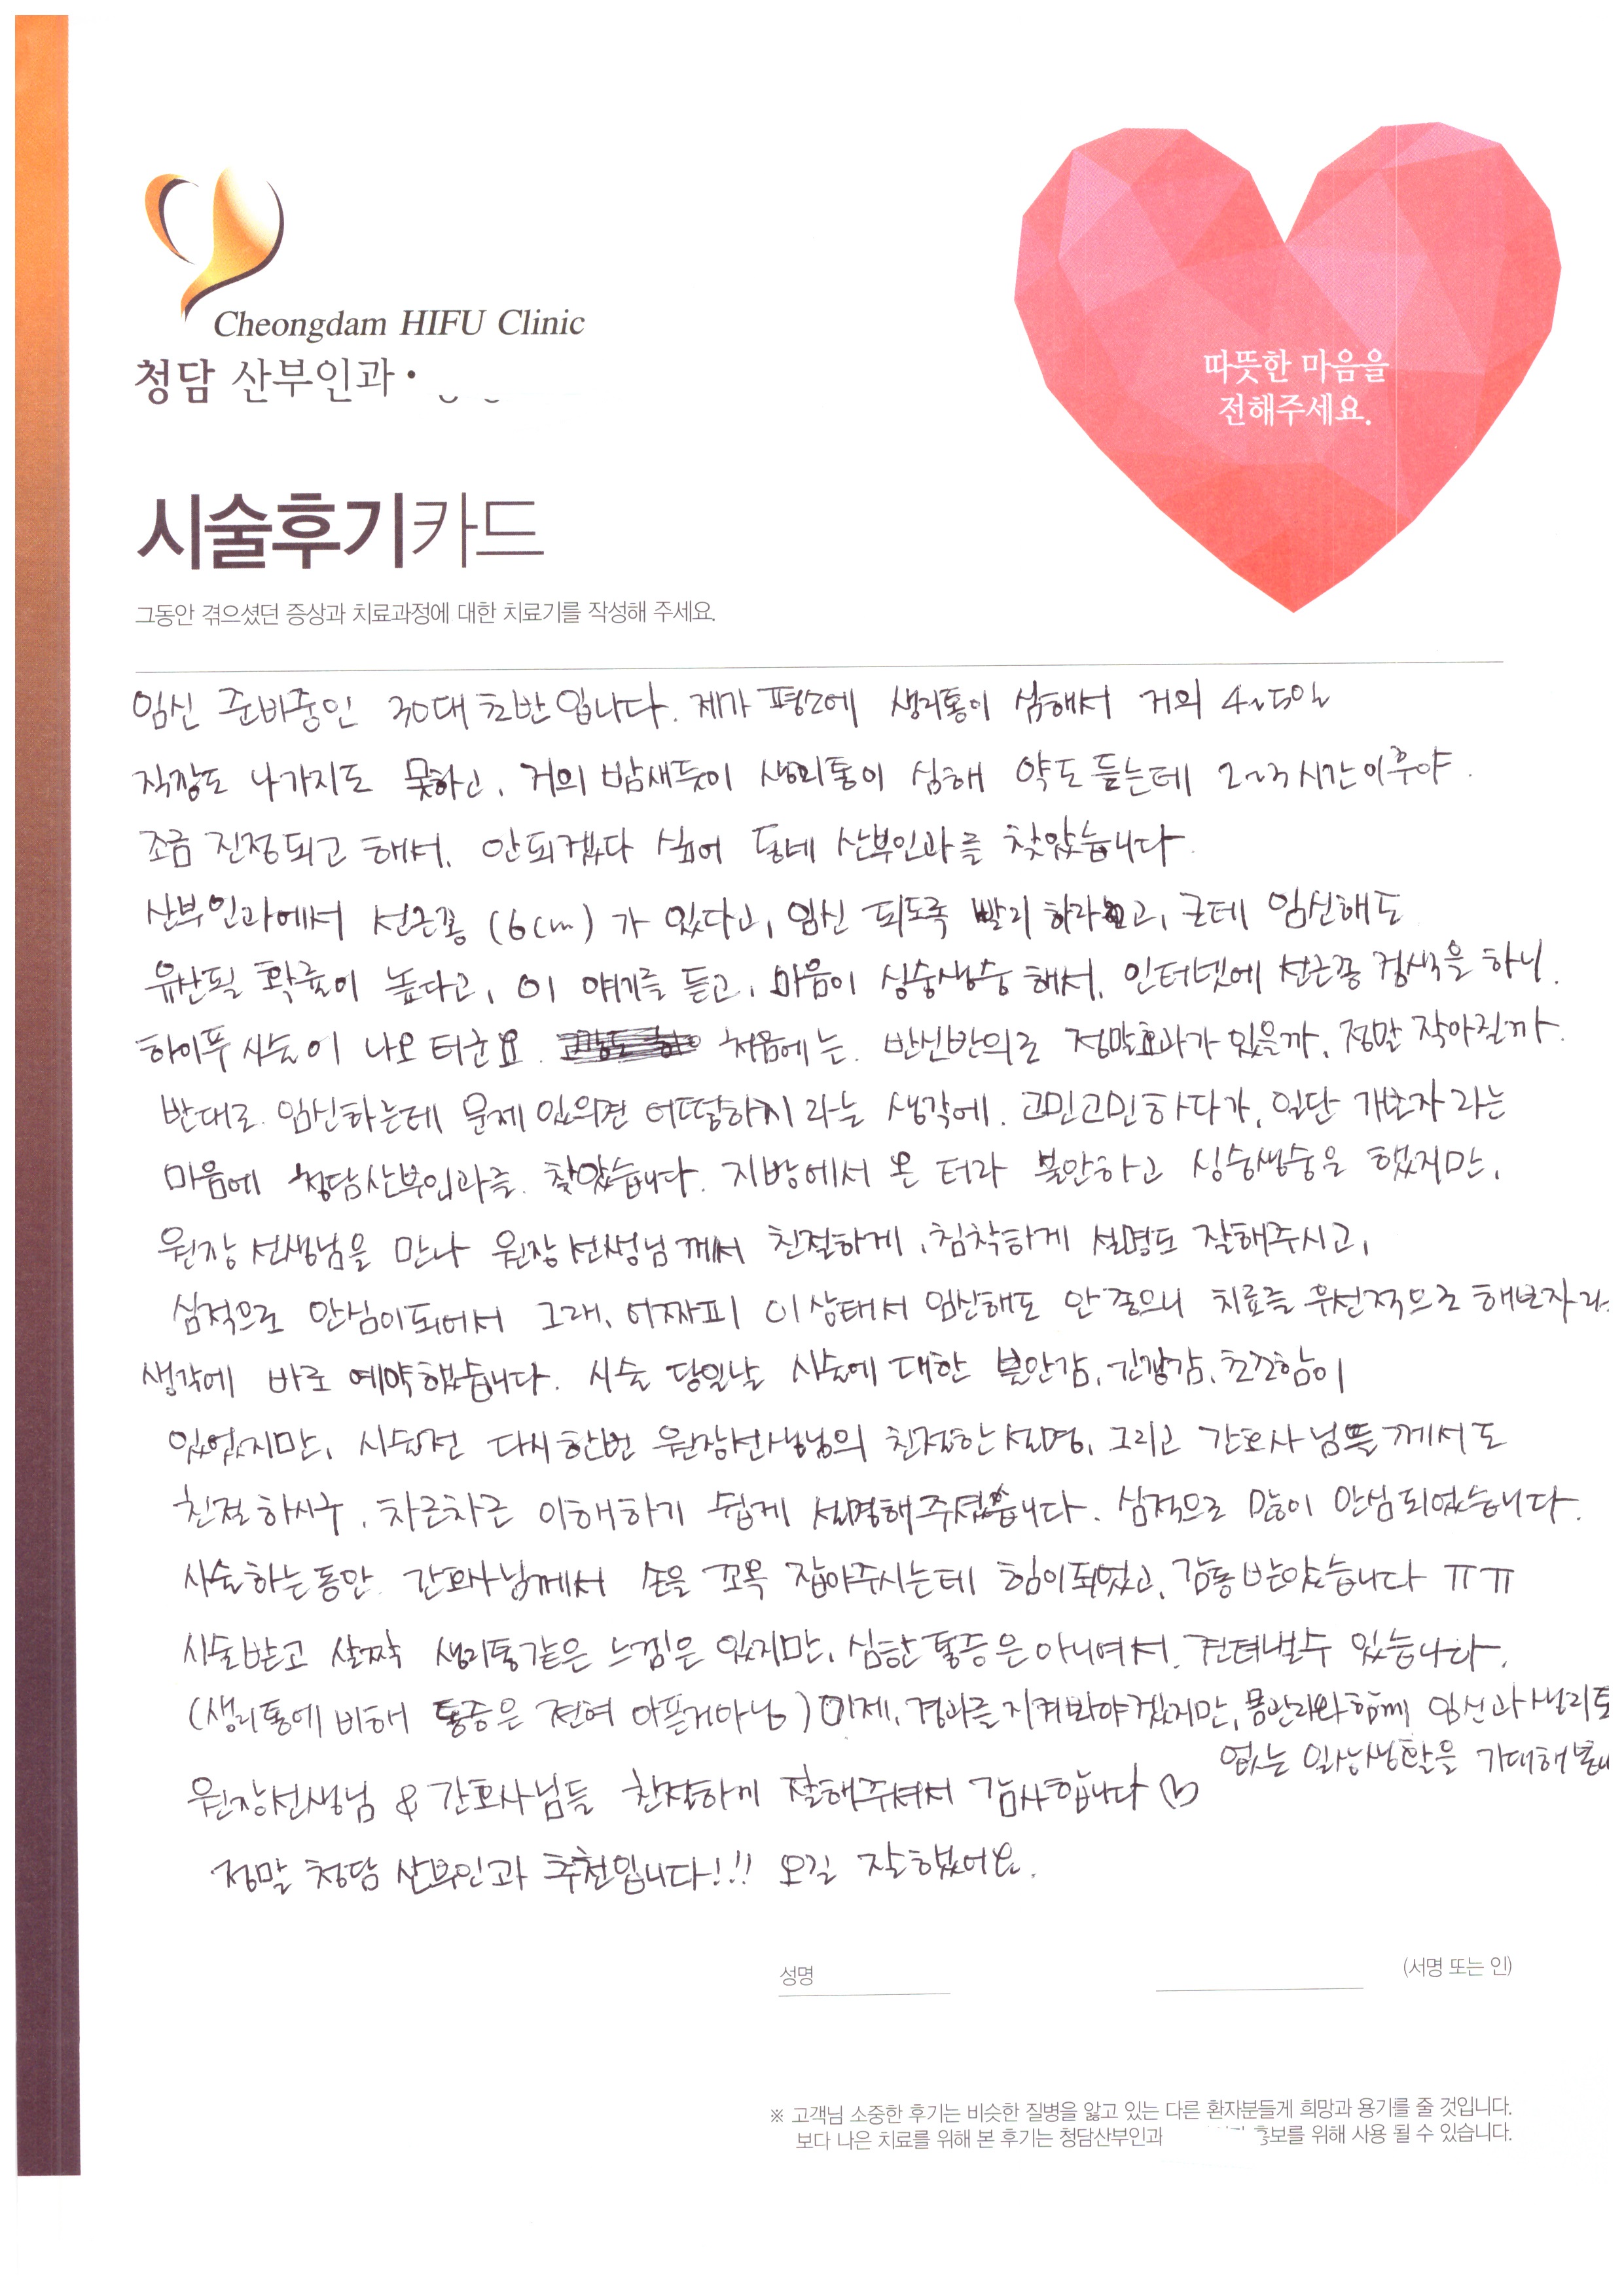 Cheongdam HIFU Clinic
청담 산부인과•
따뜻한 마음을
전해주세요.
시술후기카드
그동안 겪으셨던 증상과 치료과정에 대한 치료기를 작성해 주세요.
임신 준비중인 30대 초반입니다. 제가 평소에 생리통이 심해서 거의 4~5일
직장도 나가지도 못하고, 거의 밤새듯이 생리통이 심해 약도 듣는데 2~3시간이후야.
조금 진정되고 해서, 안되겠다 싶어 동네 산부인과를 찾았습니다.
산부인과에서 선근종 (6cm)가 있다고, 임신 되도록 빨리 하라고, 근데 임신해도
유산될 확률이 높다고, 이 얘기를 듣고, 마음이 싱숭생숭 해서, 인터넷에 선근종 검색을 하니.
하이푸 시술이 나오더군요. 처음에는. 반신반의로 정말효과가 있을까, 정말 작아질까.
반대로. 임신하는데 문제 있으면 어떡하지 라는 생각에. 고민고민하다가, 일단 가보자 라는
마음에 청담산부인과를. 찾았습니다. 지방에서 온 터라 불안하고 싱숭생숭은 했지만,
원장 선생님을 만나 원장 선생님께서 친절하게, 침착하게 설명도 잘해주시고,
심적으로 안심이되어서 그래, 어짜피 이상태서 임신해도 안좋으니 치료를 우선적으로 해보자라
생각에 바로 예약했습니다. 시술 당일날 시술에 대한 불안감, 긴장감, 초조함이
있었지만, 시술전 다시한번 원장선생님의 친절한 설명, 그리고 간호사님들께서도
친절하시구, 차근차근 이해하기 쉽게 설명해주셨습니다. 심적으로 많이 안심되었습니다.
시술하는동안 간호사님께서 손을 꼬옥 잡아주시는데 힘이되었고, 감동받았습니다 ㅠㅠ
시술받고 살짝 생리통같은 느낌은 있지만, 심한 통증은아니여서. 견뎌낼수 있습니다.
(생리통에 비해 통증은 전혀 아픈거아님) 이제, 경과를 지켜봐야겠지만, 몸관리와 함께 임신과 생리통
없는 일상생활을 기대해봅니
원장선생님 & 간호사님들 친절하게 잘해주셔서 감사합니다 ♡
정말 청담 산부인과 추천입니다!!! 오길 잘했어요.
성명
(서명 또는 인)
※ 고객님 소중한 후기는 비슷한 질병을 앓고 있는 다른 환자분들게 희망과 용기를 줄 것입니다.
보다 나은 치료를 위해 본 후기는 청담산부인과 홍보를 위해 사용 될 수 있습니다.